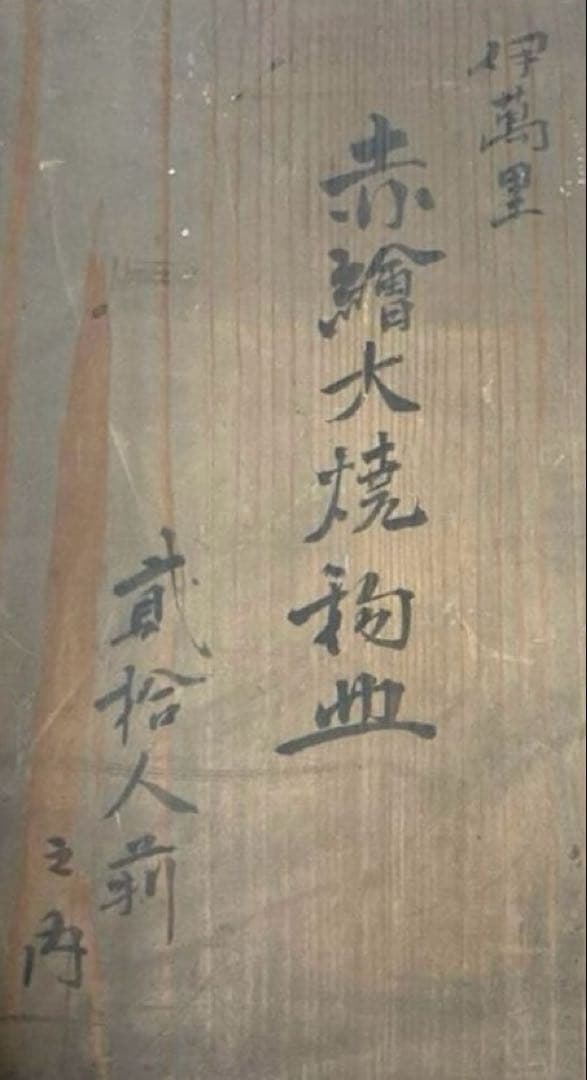 伊萬里
赤繪大燒物皿
貳拾人前
之内